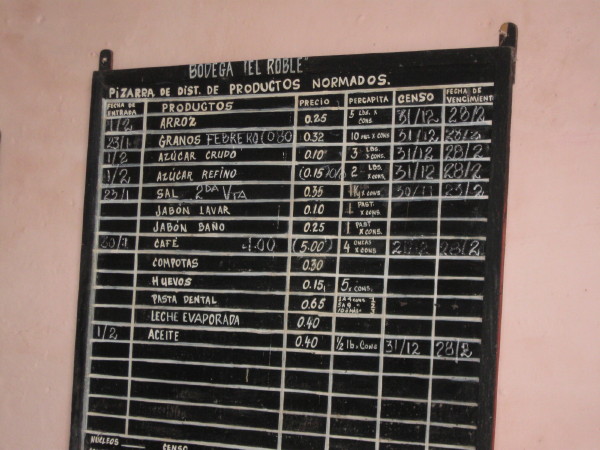 BODEGA "EL ROBLE"
PIZARRA DE DIST. DE PRODUCTOS NORMADOS.
FECHA DE ENTRADA PRODUCTOS PRECIO PERCAPITA CENSO FECHA DE VENCIMIENT
1/2 ARROZ 0.25 5 LBS. X CONS. 31/12 28/2
23/1 GRANOS FEBRERO 0.32 10 X CONS 31/12 28/2
1/2 AZÚCAR CRUDO 0.10 3 LBS. X CONS. 31/12 28/2
1/2 AZÚCAR REFINO 0.15 2 LBS. X CONS. 31/12 28/2
23/1 SAL 2DA VTA 0.35 X CONS 28/2
JABÓN LAVAR 0.10 1 PAST. X CONS.
JABÓN BAÑO 0.25 1 PAST X CONS.
CAFÉ 4.00 (5.00) 4 ONZAS X CONS. 28/2
COMPOTAS 0.30
HUEVOS 0.15 5 X CONS.
PASTA DENTAL 0.65
LECHE EVAPORADA 0.40
1/2 ACEITE 0.40 ½ lb. CONS 31/12 28/2
NÚCLEOS CENSO